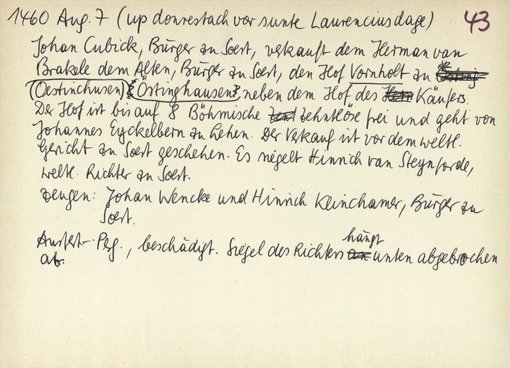 1460 Aug. 7 (up donrestach vor sunte Laurenciusdage) 43
Johan Cubick, Bürger zu Soest, verkauft dem Herman van
Brakele dem Alten, Bürger zu Soest, den Hof Vornholt zu
(Oestinchusen) (Östinghausen) neben dem Hof des Käufers
Der Hof ist bis auf 8 Böhmische Zehntlöse frei und geht von
Johannes Eyckelbern zu Lehen. Der Verkauf ist vor dem weltl.
Gericht zu Soest geschehen. Es siegelt Hinrich van Steynforde,
weltl. Richter zu Soest.
Zeugen: Johan Wencke und Hinrich Kleinchamer, Bürger zu
Soest.
Ausfert.-Perg., beschädigt. Siegel des Richters hängt unten abgebrochen
ab.